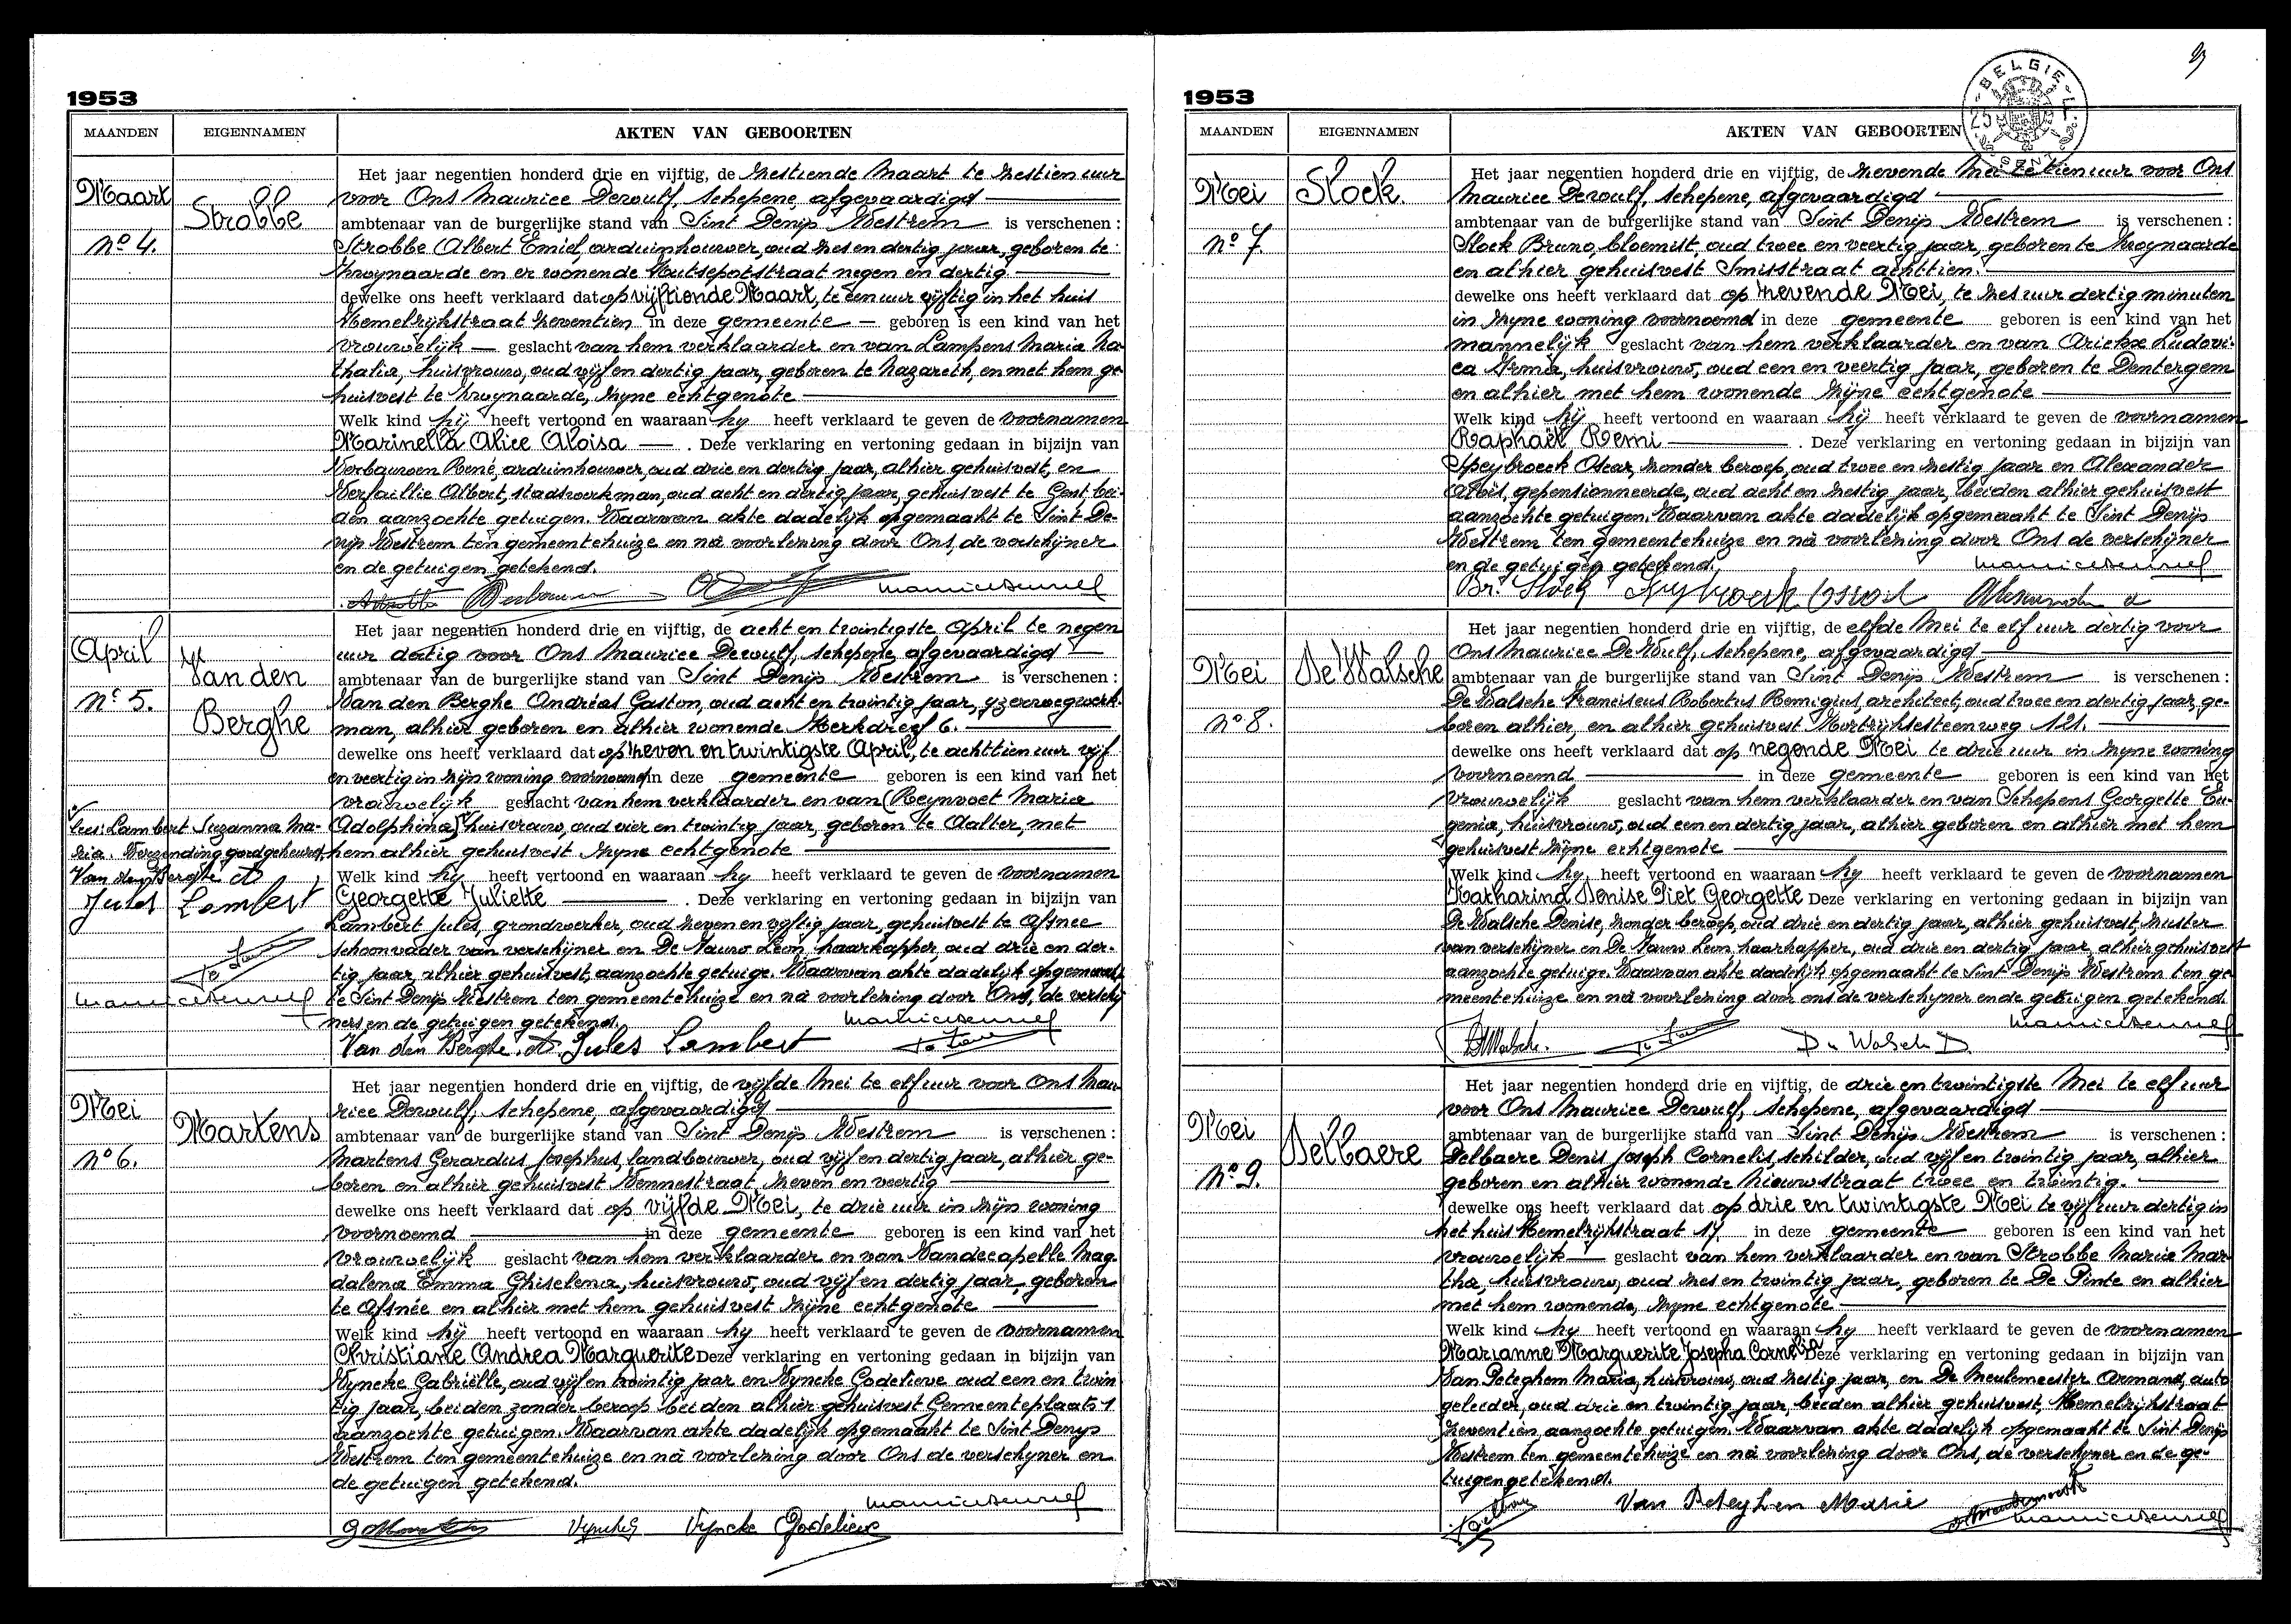 1953
MAANDEN EIGENNAMEN AKTEN VAN GEBOORTEN
Maart
Nº 4.
Strobbe
Het jaar negentien honderd drie en vijftig, de zestiende Maart te zestien uur
voor Ons Maurice Dewulf, schepene, afgevaardigd
ambtenaar van de burgerlijke stand van Sint Denijs Westrem is verschenen :
Strobbe Albert Emiel, arduinhouwer, oud zes en dertig jaar, geboren te
Zwijnaarde en er wonende Hutsepotstraat negen en dertig.
dewelke ons heeft verklaard dat op vijftiende Maart, te een uur vijftig in het huis
Hemelrijkstraat zeventien in deze gemeente geboren is een kind van het
vrouwelijk geslacht van hem verklaarder en van Lampens Maria Na-
thalia, huisvrouw, oud vijf en dertig jaar, geboren te Nazareth, en met hem ge-
huisvest te Zwijnaarde, zijne echtgenote
Welk kind hij heeft vertoond en waaraan hij heeft verklaard te geven de voornamen
Marinella Alice Aloisa . Deze verklaring en vertoning gedaan in bijzijn van
Verbauwen René, arduinhouwer, oud drie en dertig jaar, alhier gehuisvest, en
Versaillie Albert, stadswerkman, oud acht en dertig jaar, gehuisvest te Gent, bei-
den aanzochte getuigen. Waarvan akte dadelijk opgemaakt te Sint De-
nijs Westrem ten gemeentehuize en na voorlezing door Ons, de verschijner
en de getuigen getekend.
April
Nº 5.
Van den
Berghe
Het jaar negentien honderd drie en vijftig, de acht en twintigste April te negen
uur dertig voor Ons Maurice Dewulf, schepene, afgevaardigd
ambtenaar van de burgerlijke stand van Sint Denijs Westrem is verschenen :
Van den Berghe Andréas Gaston, oud acht en twintig jaar, yzerwegwerk-
man, alhier geboren en alhier wonende Kerkdreef 6.
dewelke ons heeft verklaard dat op zeven en twintigste April, te achttien uur vijf
en veertig in zijn woning voornoemd in deze gemeente geboren is een kind van het
vrouwelijk geslacht van hem verklaarder en van (Reynvoet Maria
Adolphina) huisvrouw, oud vier en twintig jaar, geboren te Aalter, met
hem alhier gehuisvest zijne echtgenote
Welk kind hij heeft vertoond en waaraan hij heeft verklaard te geven de voornamen
Georgette Juliette . Deze verklaring en vertoning gedaan in bijzijn van
Lambert Jules, grondwerker, oud zeven en vijftig jaar, gehuisvest te Afsnee
schoonvader van verschijner en De Pauw Leon, haarkapper, oud drie en der-
tig jaar, alhier gehuisvest, aanzochte getuige. Waarvan akte dadelijk opgemaakt
te Sint Denijs Westrem ten gemeentehuize en na voorlezing door Ons, de verschij-
ners en de getuigen getekend.
lees: Lambert Suzanna Ma-
ria. Verzending goedgekeurd.
Van den Berghe A
Jules Lambert
Van den Berghe. A. Jules Lambert
Mei
Nº 6.
Martens
Het jaar negentien honderd drie en vijftig, de vijfde Mei te elf uur voor Ons Mau-
rice Dewulf, schepene, afgevaardigd
ambtenaar van de burgerlijke stand van Sint Denijs Westrem is verschenen :
Martens Gerardus Josephus, landbouwer, oud vijf en dertig jaar, alhier ge-
boren en alhier gehuisvest Vennestraat, zeven en veertig
dewelke ons heeft verklaard dat op vijfde Mei, te drie uur in zijn woning
voornoemd in deze gemeente geboren is een kind van het
vrouwelijk geslacht van hem verklaarder en van Vandecapelle Mag-
dalena Emma Ghislena, huisvrouw, oud vijf en dertig jaar, geboren
te Afsnée en alhier met hem gehuisvest zijne echtgenote
Welk kind hij heeft vertoond en waaraan hij heeft verklaard te geven de voornamen
Christiane Andrea Marguerite Deze verklaring en vertoning gedaan in bijzijn van
Vyncke Gabriëlle, oud vijf en twintig jaar en Vyncke Godelieve oud een en twin-
tig jaar, beiden zonder beroep beiden alhier gehuisvest Gemeenteplaats 1
aanzochte getuigen. Waarvan akte dadelijk opgemaakt te Sint Denijs
Westrem ten gemeentehuize en na voorlezing door Ons de verschijner en
de getuigen getekend.
Vyncke G Vyncke Godelieve
1953
MAANDEN EIGENNAMEN AKTEN VAN GEBOORTEN
BELGIE
GENT
Mei
Nº 7.
Stock.
Het jaar negentien honderd drie en vijftig, de zevende Mei te tien uur voor Ons
Maurice Dewulf, schepene, afgevaardigd
ambtenaar van de burgerlijke stand van Sint Denijs Westrem is verschenen :
Stock Bruno, bloemist, oud twee en veertig jaar, geboren te Zwijnaarde
en alhier gehuisvest Smisstraat achttien.
dewelke ons heeft verklaard dat op zevende Mei, te zes uur dertig minuten
in zijne woning voornoemd in deze gemeente geboren is een kind van het
mannelijk geslacht van hem verklaarder en van Arickx Ludovi-
ca Irma, huisvrouw, oud een en veertig jaar, geboren te Dentergem
en alhier met hem wonende zijne echtgenote
Welk kind hij heeft vertoond en waaraan hij heeft verklaard te geven de voornamen
Raphaël Remi . Deze verklaring en vertoning gedaan in bijzijn van
Speybroeck Oscar, zonder beroep, oud twee en zestig jaar en Alexander
Aloïs, gepensionneerde, oud acht en zestig jaar, beiden alhier gehuisvest
aanzochte getuigen. Waarvan akte dadelijk opgemaakt te Sint Denijs
Westrem ten gemeentehuize en na voorlezing door Ons de verschijner
en de getuigen getekend.
Br. Stock
Mei
Nº 8.
De Walsche
Het jaar negentien honderd drie en vijftig, de elfde Mei te elf uur dertig voor
Ons Maurice De Wulf, schepene, afgevaardigd
ambtenaar van de burgerlijke stand van Sint Denijs Westrem is verschenen :
De Walsche Franciscus Robertus Remigius, architect, oud twee en dertig jaar ge-
boren alhier, en alhier gehuisvest Kortrijksesteenweg 121.
dewelke ons heeft verklaard dat op negende Mei te drie uur in zijne woning
voornoemd in deze gemeente geboren is een kind van het
vrouwelijk geslacht van hem verklaarder en van Schepens Georgette Eu-
genia, huisvrouw, oud een en dertig jaar, alhier geboren en alhier met hem
gehuisvest zijne echtgenote
Welk kind hij heeft vertoond en waaraan hij heeft verklaard te geven de voornamen
Katharina Denise Piet Georgette Deze verklaring en vertoning gedaan in bijzijn van
De Walsche Denise, zonder beroep, oud drie en dertig jaar, alhier gehuisvest, zuster
van verschijner en De Pauw Leon, haarkapper, oud drie en dertig jaar, alhier gehuisvest
aanzochte getuige. Waarvan akte dadelijk opgemaakt te Sint Denijs Westrem ten ge-
meentehuize en na voorlezing door ons de verschijner en de getuigen getekend.
Mei
Nº 9.
Delbaere
Het jaar negentien honderd drie en vijftig, de drie en twintigste Mei te elf uur
voor Ons Maurice Dewulf, schepene, afgevaardigd
ambtenaar van de burgerlijke stand van Sint Denijs Westrem is verschenen :
Delbaere Denis Joseph Cornelis, schilder, oud vijf en twintig jaar, alhier
geboren en alhier wonende Nieuwstraat twee en twintig.
dewelke ons heeft verklaard dat op drie en twintigste Mei te vijf uur dertig in
het huis Hemelrijkstraat 17 in deze gemeente geboren is een kind van het
vrouwelijk geslacht van hem verklaarder en van Strobbe Maria Mar-
tha, huisvrouw, oud zes en twintig jaar, geboren te De Pinte en alhier
met hem wonende, zijne echtgenote
Welk kind hij heeft vertoond en waaraan hij heeft verklaard te geven de voornamen
Marianne Marguerite Josepha Cornelia Deze verklaring en vertoning gedaan in bijzijn van
Van Peteghem Maria, huisvrouw, oud zestig jaar, en De Meulemeester Armand, auto
geleider, oud drie en twintig jaar, beiden alhier gehuisvest, Hemelrijkstraat
zeventien, aanzochte getuigen. Waarvan akte dadelijk opgemaakt te Sint Denijs
Westrem ten gemeentehuize en na voorlezing door Ons, de verschijner en de ge-
tuigen getekend.
Van Peteghem Marie